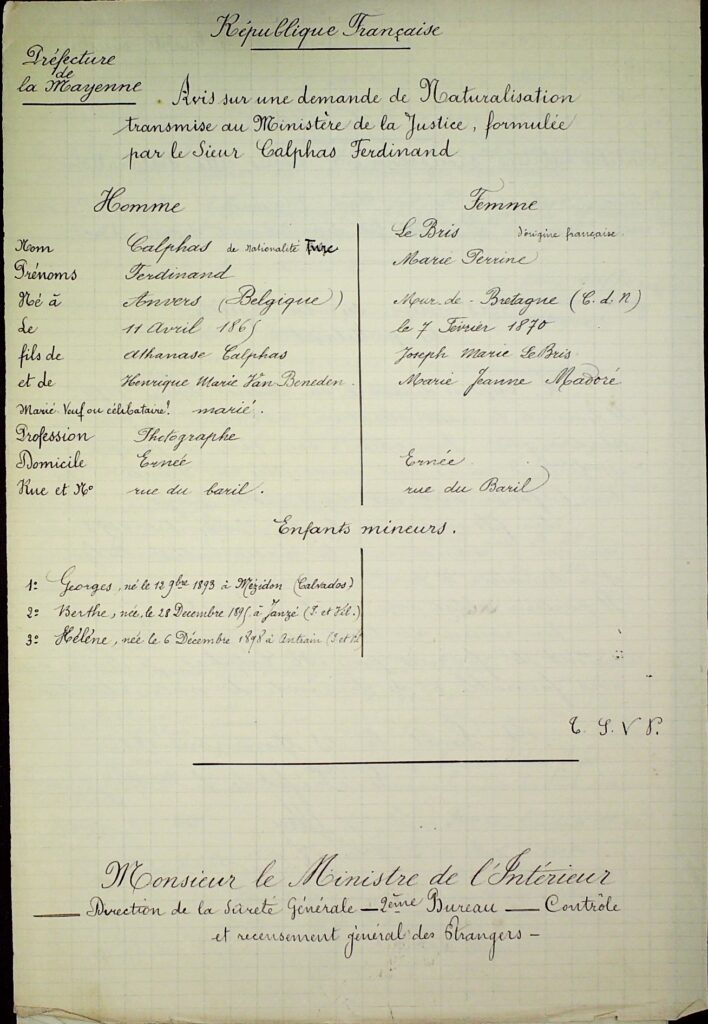 République Française
Préfecture
de
la Mayenne
Avis sur une demande de Naturalisation
transmise au Ministère de la Justice, formulée
par le Sieur Calphas Ferdinand
Homme
Femme
Nom Calphas de nationalité Turque
Le Bris d'origine française.
Prénoms Ferdinand
Marie Perrine
Né à Anvers (Belgique)
Mur-de-Bretagne (C. d. N)
Le 11 Avril 1865
le 7 Février 1870
fils de Athanase Calphas
Joseph Marie Le Bris
et de Henrique Marie Van Beneden.
Marie Jeanne Madoré
Marié Veuf ou célibataire? marié.
Profession Photographe
Domicile Ernée
Ernée
Rue et No rue du baril.
rue du Baril
Enfants mineurs.
1º Georges, né le 12 9bre 1893 à Mézidon (Calvados)
2º Berthe, née le 28 Décembre 1895 à Janzé (I. et Vil.)
3º Hélène, née le 6 Décembre 1898 à Antrain (I et V)
T. S. V P.
Monsieur le Ministre de l'Intérieur
— Direction de la Sûreté Générale — 2ème Bureau — Contrôle
et recensement général des Etrangers -